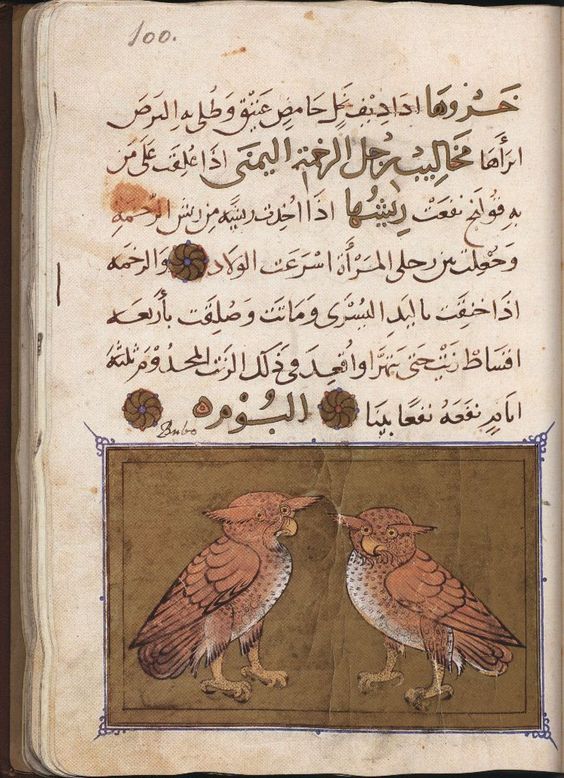 100.
خروها اذا ديف بخل حامض عتيق وطلي به البرص
ابرأها مخاليب رجل الرخمة اليمنى اذا علقت على من
به قولنج نفعت ريشها اذا اخذت ريشة من ريش الرخمة
وجعلت بين رجلى المرأة اسرعت الولاد والرخمه
اذا خنقت باليد اليسرى وماتت وصلقت بأربعه
اقساط زيت حتى يتهرا واقعد فى ذلك الزيت المجذوم ثلثة
ايام نفعه نفعا بينا البوم
Bubo